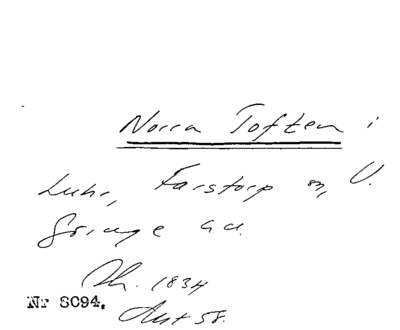 Norra Toften i
Luhr, Farstorp sn, V.
Göinge hd.
Sh. 1834
Nr 8094.
Akt 58.